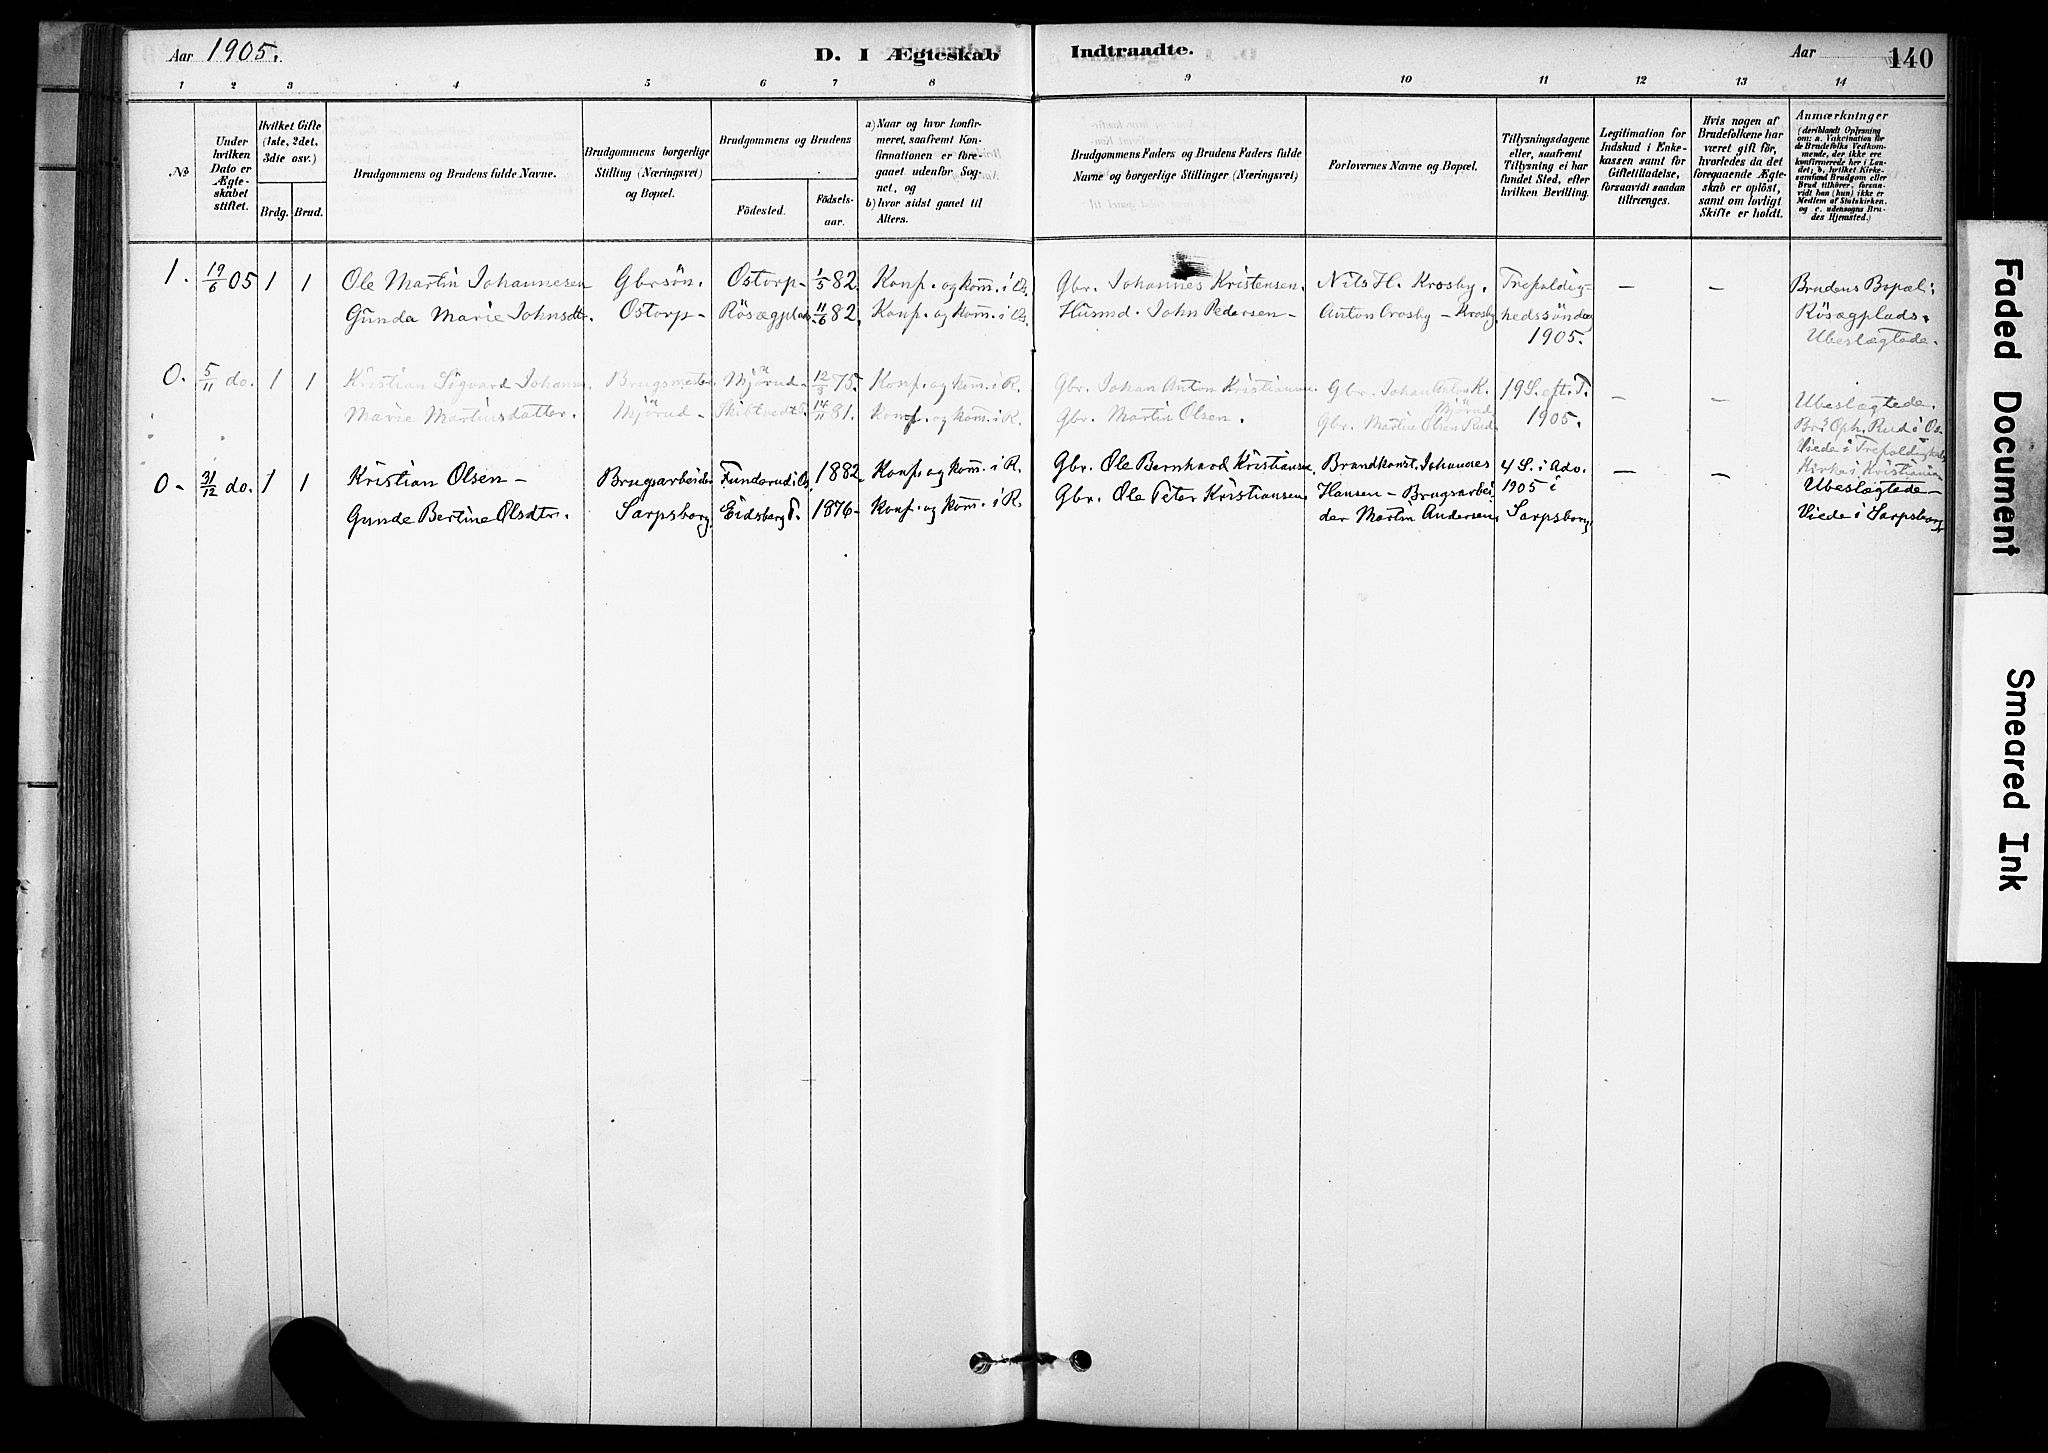 Aar 1905.
D. I Ægteskab Indtraadte.
Aar 140
1 2 3 4 5 6 7 8 9 10 11 12 13 14
No
Under hvilken Dato er Ægteskabet stiftet.
Hvilket Gifte (1ste, 2det, 3die osv.)
Brdg. Brud.
Brudgommens og Brudens fulde Navne.
Brudgommens borgerlige Stilling (Næringsvei) og Bopæl.
Brudgommens og Brudens
Fødested. Fødselsaar.
a) Naar og hvor konfirmeret, saafremt Konfirmationen er foregaaet udenfor Sognet, og
b) hvor sidst gaaet til Alters.
Brudgommens Faders og Brudens Faders fulde Navne og borgerlige Stillinger (Næringsvei)
Forlovernes Navne og Bopæl.
Tillysningsdagene eller, saafremt Tillysning ei har fundet Sted, efter hvilken Bevilling.
Legitimation for Indskud i Enkekassen samt for Giftetilladelse, forsaavidt saadan tiltrænges.
Hvis nogen af Brudefolkene har været gift før, hvorledes da det foregaaende Ægteskab er opløst, samt om lovligt Skifte er holdt.
Anmærkninger (deriblandt Oplysning om: a. Vakcination for de Brudefolks Vedkommende, der ikke ere konfirmerede her i Landet; b. hvilket Kirkesamfund Brudgom eller Brud tilhører, forsaavidt han (hun) ikke er Medlem af Statskirken, og c. udensogns Brudes Hjemsted.)
1. 19/6 05 1 1 Ole Martin Johannesen Gbrsøn. Ostorp- 1/5 82 Konf. og kom. i Os. Gbr. Johannes Kristensen. Nils H. Krosby. Trefoldig- — — Brudens Bopæl:
Gunda Marie Johnsdtr. Ostorp- Rösægplads 11/6 82. Konf. og kom. i Os. Husmd. John Pedersen- Anton Crosby - Krosby hedssöndag Rösægplads.
1905. Ubeslægtede.
0. 5/11 do. 1 1 Kristian Sigvard Johansen. Brugsmester Mjörud- 12/3 75. Konf. og kom. i R. Gbr. Johan Anton Kristiansen Gbr. Johan Anton K. Mjörud 19 S. eft. T.
Marie Martinsdatter. Mjörud- Skibtvedt 14/11 81. Konf. og kom. i R. Gbr. Martin Olsen. Gbr. Martin Olsen Rud 1905. — — Ubeslægtede.
Brs Oph. Rud i Os
Viede i Trefoldigheds
Kirke i Kristiania
0- 31/12 do. 1 1 Kristian Olsen- Brugsarbeider Funderud i Os. 1882. Konf. og kom. i R. Gbr. Ole Bernhard Kristiansen. Brandkonst. Johannes 4 S. i Adv. — — Ubeslægtede-
Gunde Bertine Olsdtr. Sarpsborg Eidsberg P. 1876- Konf. og kom. i R. Gbr. Ole Peter Kristiansen Hansen - Brugsarbei- 1905 i Viede i Sarpsborg
der Martin Andersen Sarpsborg
Faded Document
Smeared Ink